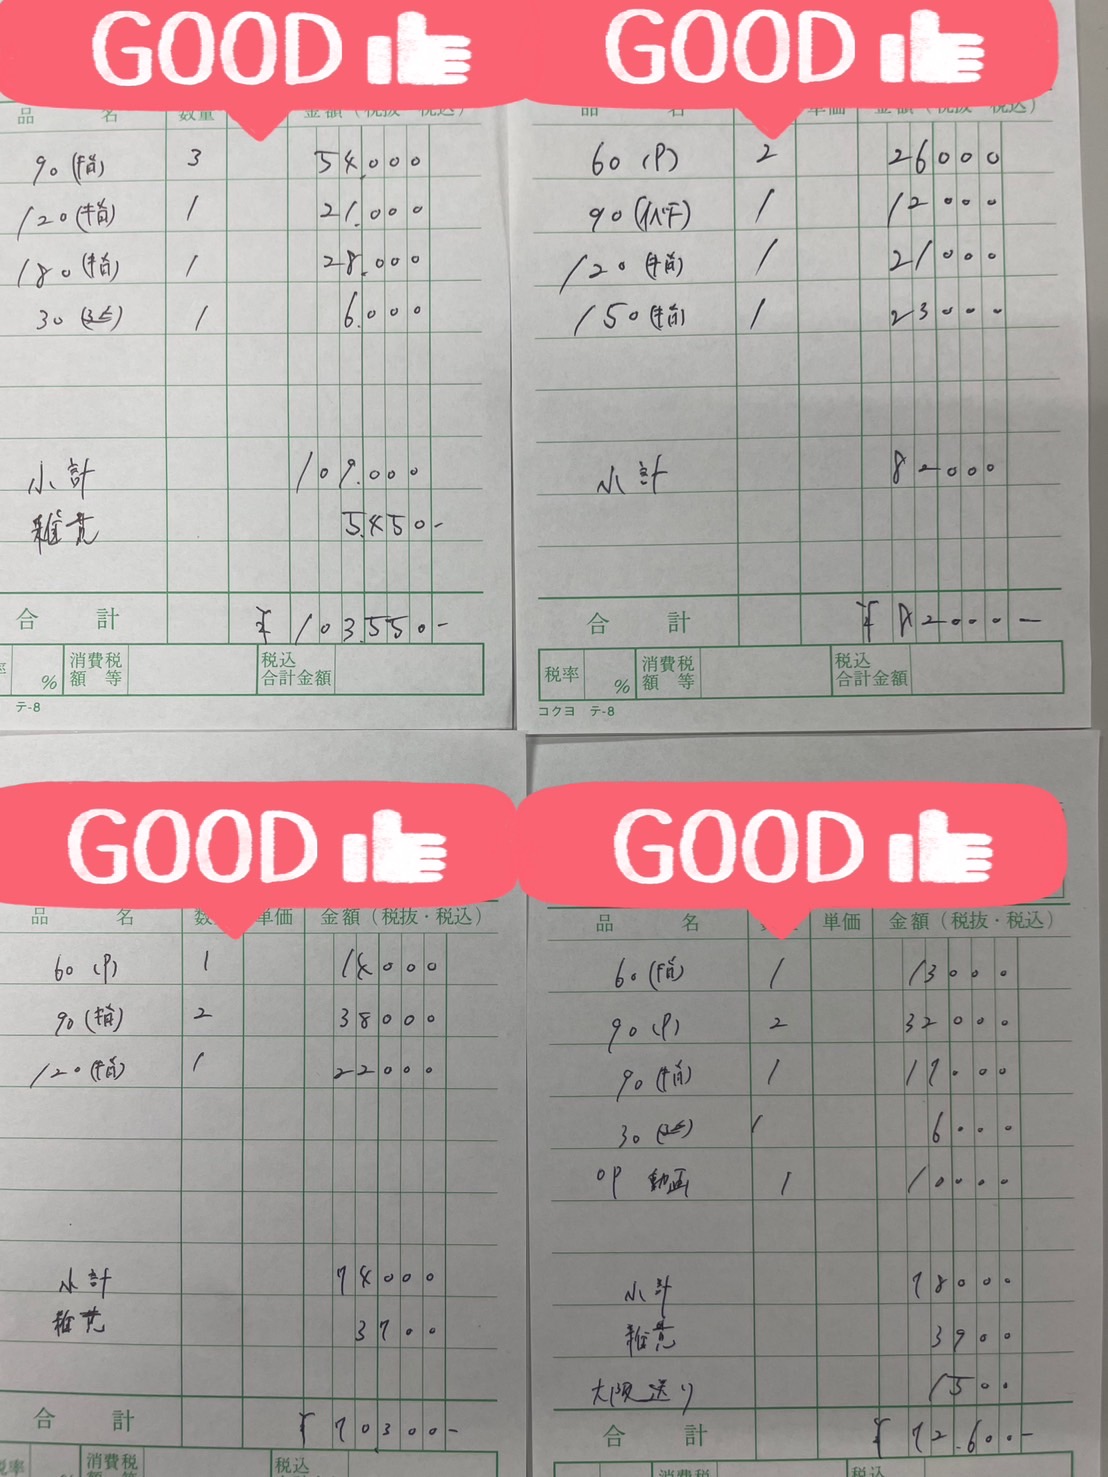 GOOD
品 名 数量 金額（税抜・税込）
90 (指) 3 54.000
120 (指) 1 21.000
180 (指) 1 28.000
30 (延) 1 6.000
小計 109.000
雑費 5.450-
合 計 ¥103.550-
% 消費税額等 税込合計金額
テ-8
GOOD
品 名 単価 金額（税抜・税込）
60 (P) 2 26000
90 1 12000
120 (指) 1 21000
150 (指) 1 23000
小計 82000
合 計 ¥82000-
税率 % 消費税額等 税込合計金額
コクヨ テ-8
GOOD
品 名 数 単価 金額（税抜・税込）
60 (P) 1 14000
90 (指) 2 38000
120 (指) 1 22000
小計 74000
雑費 3700
合 計 ¥70300-
税率 消費税 税込
GOOD
品 名 単価 金額（税抜・税込）
60 (指) 1 13000
90 (P) 2 32000
90 (指) 1 17000
30 (延) 1 6000
OP 動画 1 10000
小計 78000
雑費 3900
大阪送り 1500
合 計 ¥72.600-
消費税 税込